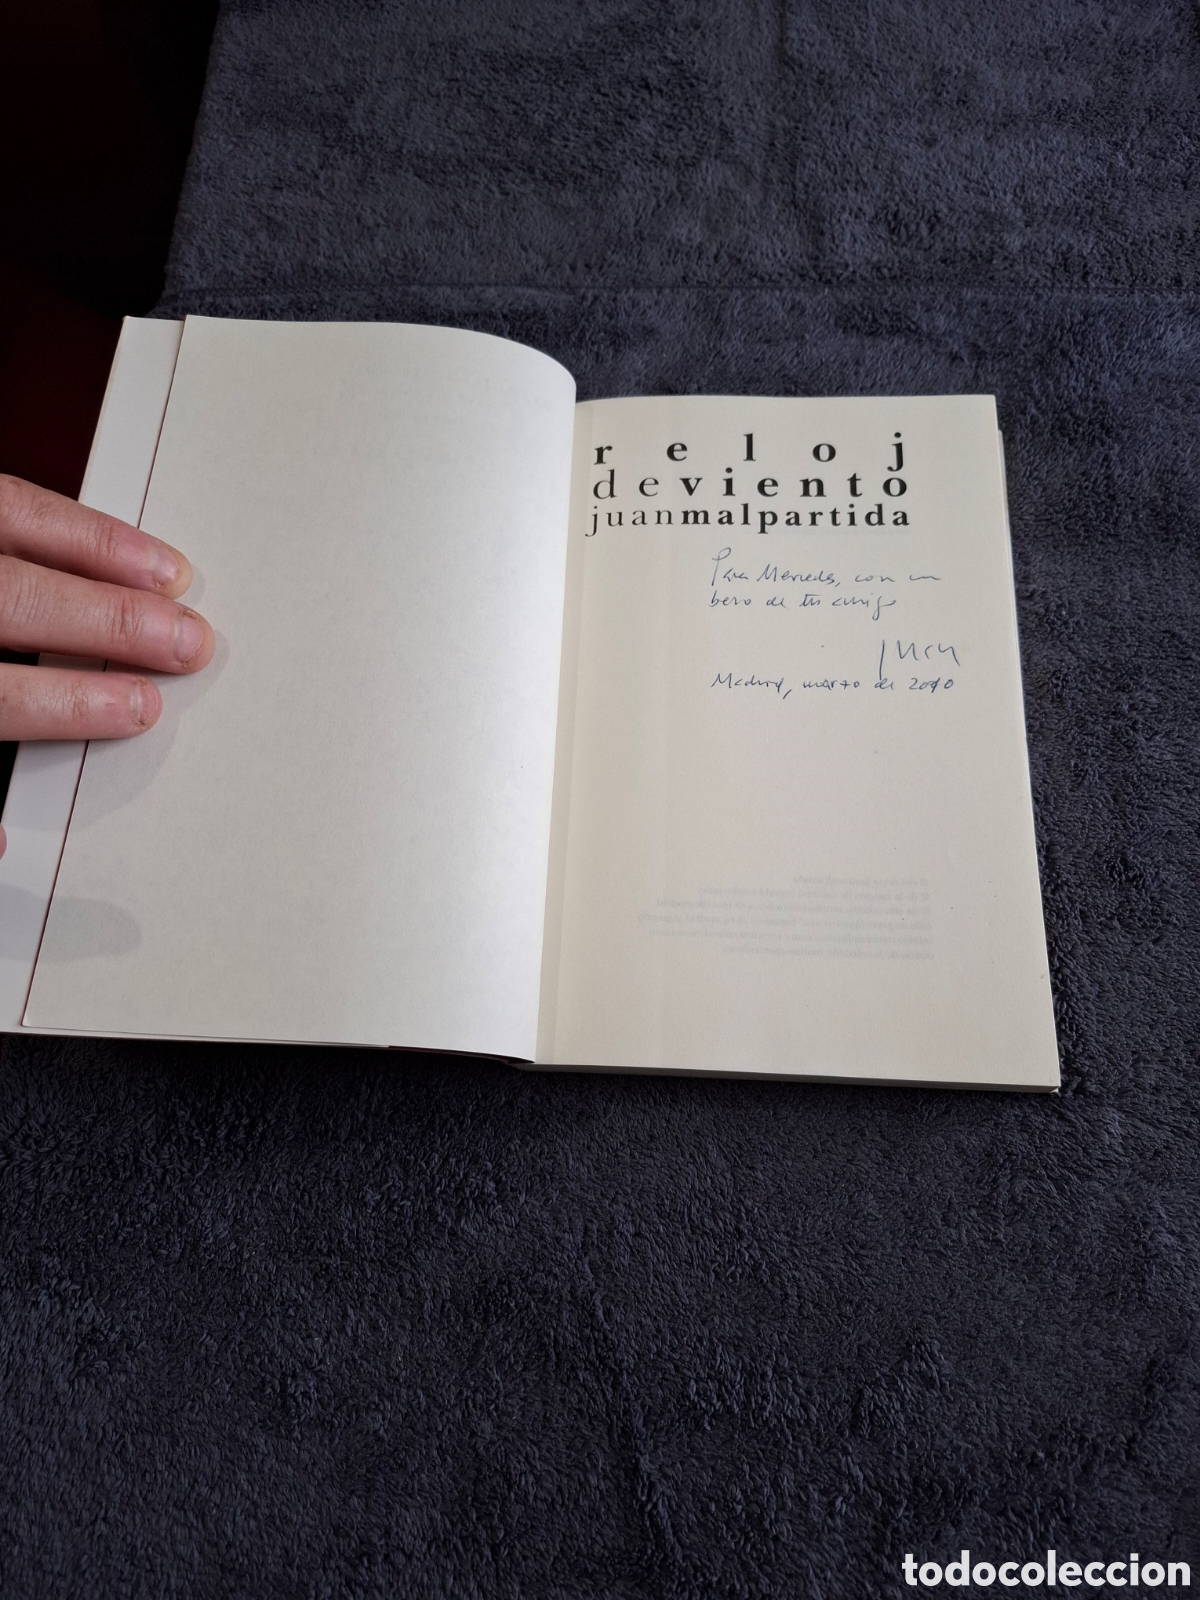 reloj
deviento
juanmalpartida
Para Mercedes, con un
beso de tu amigo
Juan
Madrid, marzo de 2010
todocoleccion